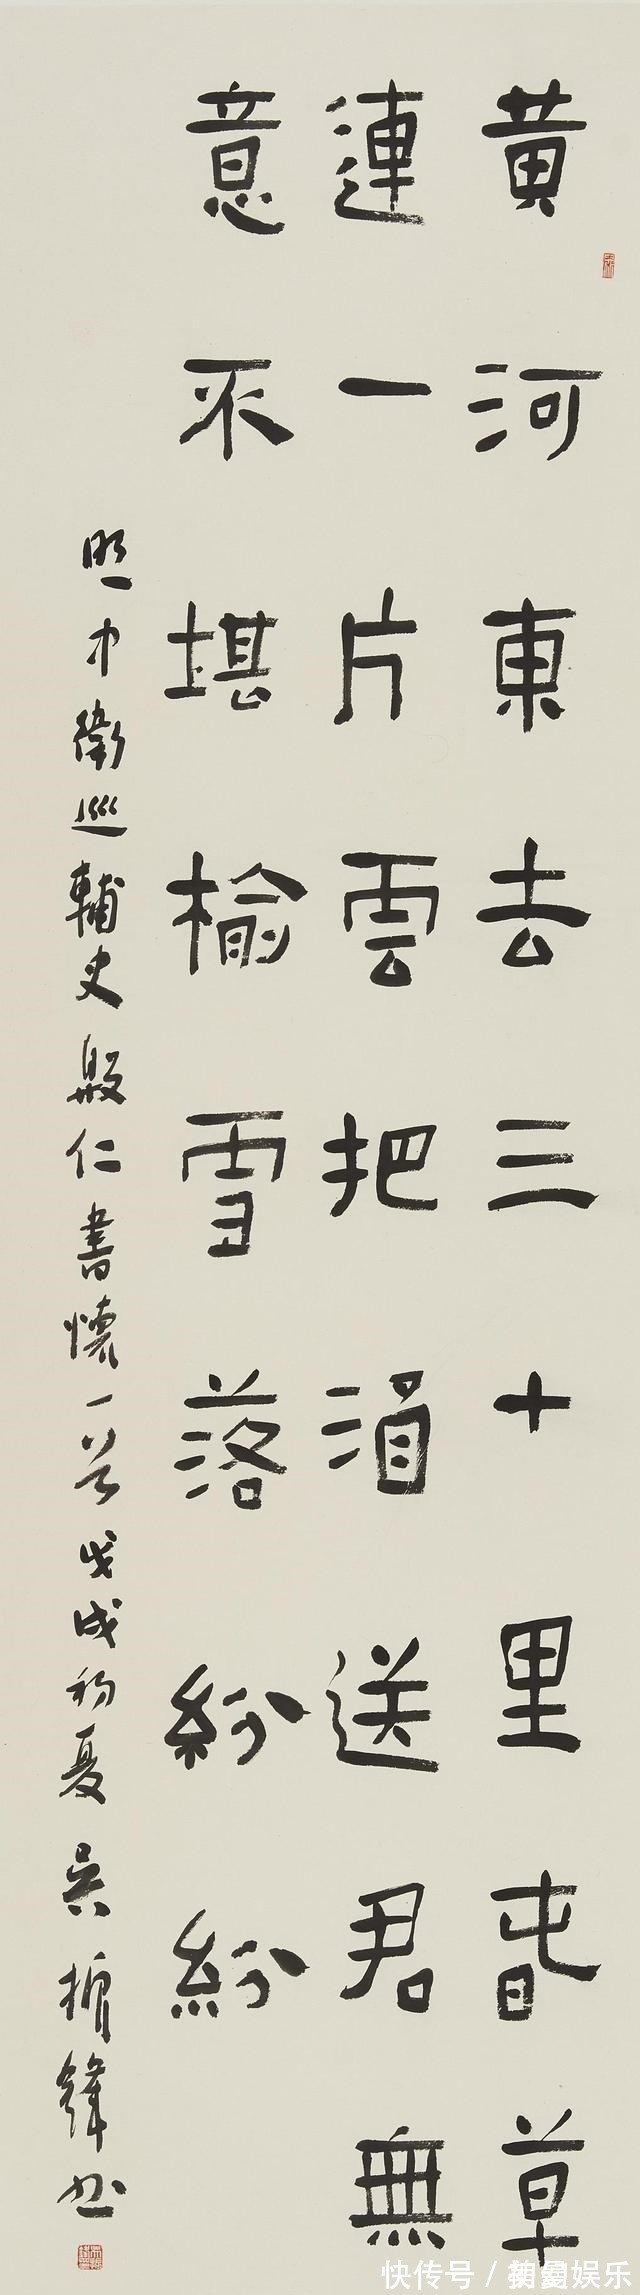 黄河東去三十里春草
連一片雲把酒送君無
意不堪榆雪落紛紛
明中衛巡輔史殷仁書懷一首戊戌初夏吴鋒书
快传号 / 娱乐